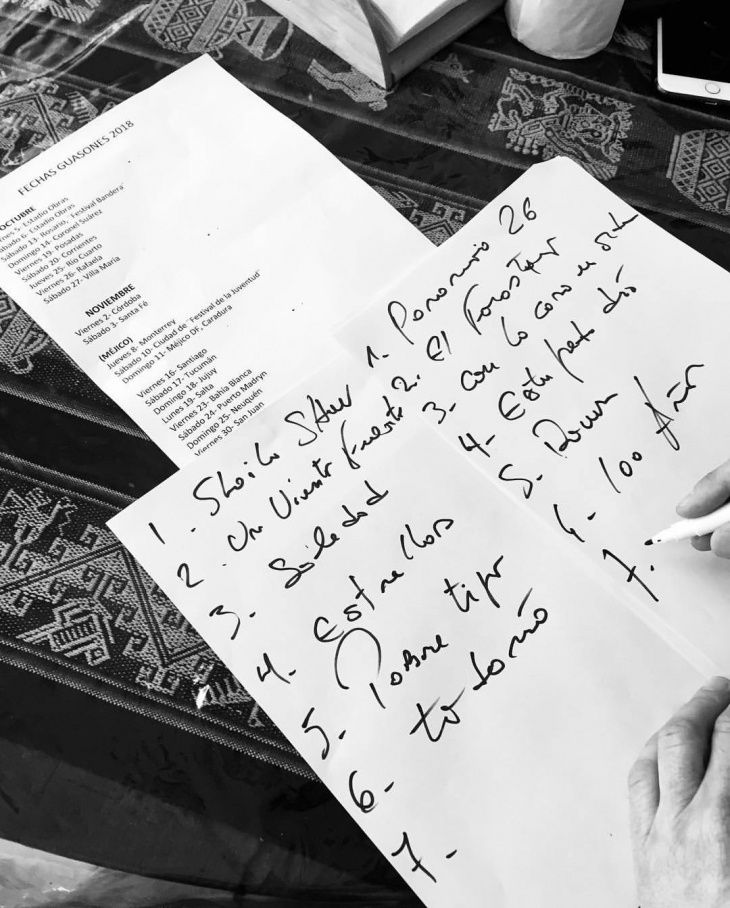 FECHAS GUASONES 2018
OCTUBRE
Viernes 5- Estadio Obras
Sábado 6- Estadio Obras
Sábado 13- Rosario, "Festival Bandera"
Domingo 14- Coronel Suárez
Viernes 19- Posadas
Sábado 20- Corrientes
Jueves 25- Río Cuarto
Viernes 26- Rafaela
Sábado 27- Villa María
NOVIEMBRE
Viernes 2- Córdoba
Sábado 3- Santa Fé
(MÉJICO)
Jueves 8- Monterrey
Sábado 10- Ciudad de "Festival de la Juventud"
Domingo 11- Méjico DF, Caradura
Viernes 16- Santiago
Sábado 17- Tucumán
Domingo 18- Jujuy
Lunes 19- Salta
Viernes 23- Bahía Blanca
Sábado 24- Puerto Madryn
Domingo 25- Neuquén
Viernes 30- San Juan
1.
2. Un Viento Fuerte
3. Soledad
4. Estrellas
5. Pobre tipo
6- to
7-
1.
2. El
3- con la cara
4- Esta
5-
6- 100 Años
7.